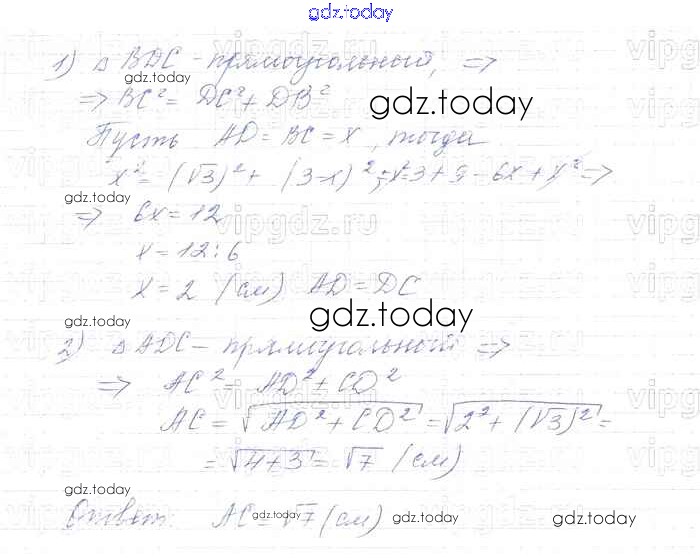 gdz.today
1) △ BDC - прямоугольный, ⇒
⇒ BC² = DC² + DB²
gdz.today
gdz.today
Пусть AD = BC = x, тогда
x² = (√3)² + (3-x)²; x² = 3 + 9 - 6x + x² ⇒
gdz.today
⇒ 6x = 12
x = 12 : 6
x = 2 (см) AD = DC
gdz.today
gdz.today
2) △ ADC - прямоугольный ⇒
⇒ AC² = AD² + CD²
AC = √AD² + CD² = √2² + (√3)² =
= √4+3 = √7 (см)
gdz.today
gdz.today
Ответ: AC = √7 (см)
gdz.today
gdz.today
gdz.today